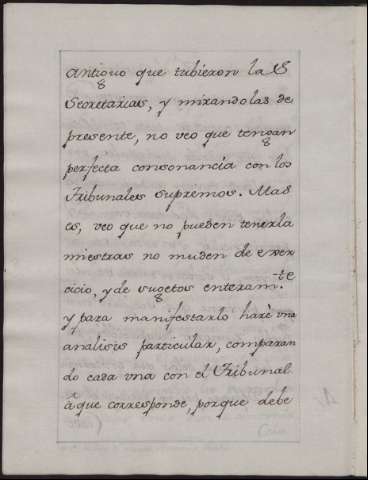 antiguo que tubieron las
Secretarias, y mirandolas de
presente, no veo que tengan
perfecta consonancia con los
Tribunales supremos. Mas
es, veo que no pueden tenerla
miestras no muden de exer
cicio, y de sugetos enteram.te
y para manifestarlo harè una
analisis particular, comparan
do cada vna con el Tribunal
à que corresponde, porque debe